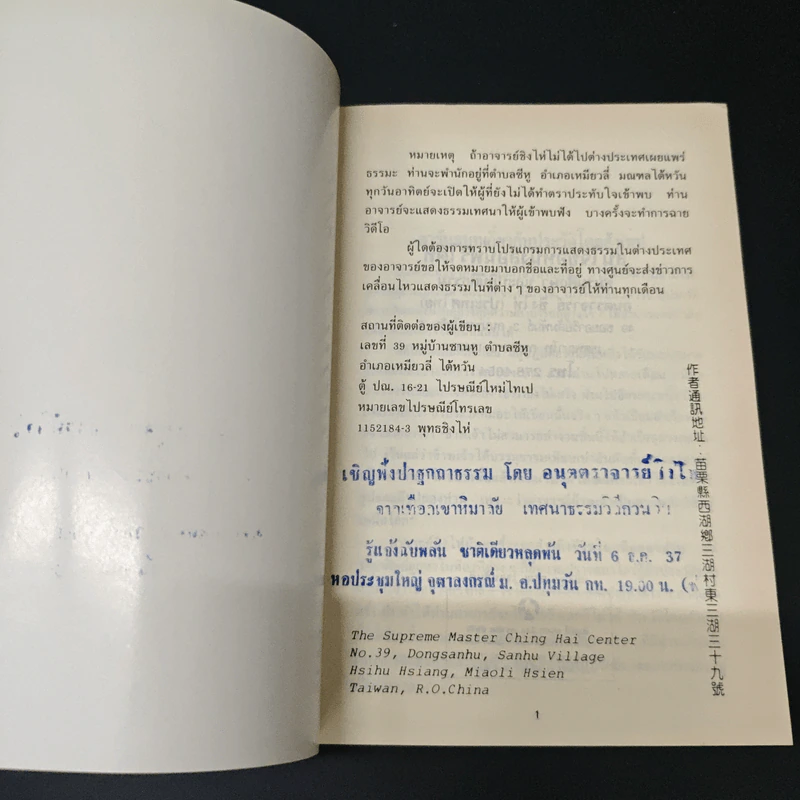 หมายเหตุ ถ้าอาจารย์ชิงไห่ไม่ได้ไปต่างประเทศเผยแพร่
ธรรมะ ท่านจะพำนักอยู่ที่ตำบลซีหู อำเภอเหมียวลี่ มณฑลไต้หวัน
ทุกวันอาทิตย์จะเปิดให้ผู้ที่ยังไม่ได้ทำตราประทับใจเข้าพบ ท่าน
อาจารย์จะแสดงธรรมเทศนาให้ผู้เข้าพบฟัง บางครั้งจะทำการฉาย
วิดีโอ
ผู้ใดต้องการทราบโปรแกรมการแสดงธรรมในต่างประเทศ
ของอาจารย์ขอให้จดหมายมาบอกชื่อและที่อยู่ ทางศูนย์จะส่งข่าวการ
เคลื่อนไหวแสดงธรรมในที่ต่าง ๆ ของอาจารย์ให้ท่านทุกเดือน
สถานที่ติดต่อของผู้เขียน :
เลขที่ 39 หมู่บ้านซานหู ตำบลซีหู
อำเภอเหมียวลี่ ไต้หวัน
ตู้ ปณ. 16-21 ไปรษณีย์ใหม่ไทเป
หมายเลขไปรษณีย์โทรเลข
1152184-3 พุทธชิงไห่
เชิญฟังปาฐกถาธรรม โดย อนุตตราจารย์ชิงไห่
จากเทือกเขาหิมาลัย เทศนาธรรมวิถีกวนอิม
รู้แจ้งฉับพลัน ชาติเดียวหลุดพ้น วันที่ 6 ต.ค. 37
หอประชุมใหญ่ จุฬาลงกรณ์ ม. อ.ปทุมวัน กท. 19.00 น.
The Supreme Master Ching Hai Center
No.39, Dongsanhu, Sanhu Village
Hsihu Hsiang, Miaoli Hsien
Taiwan, R.O.China
作者通訊地址：苗栗縣西湖鄉三湖村東三湖三十九號
1